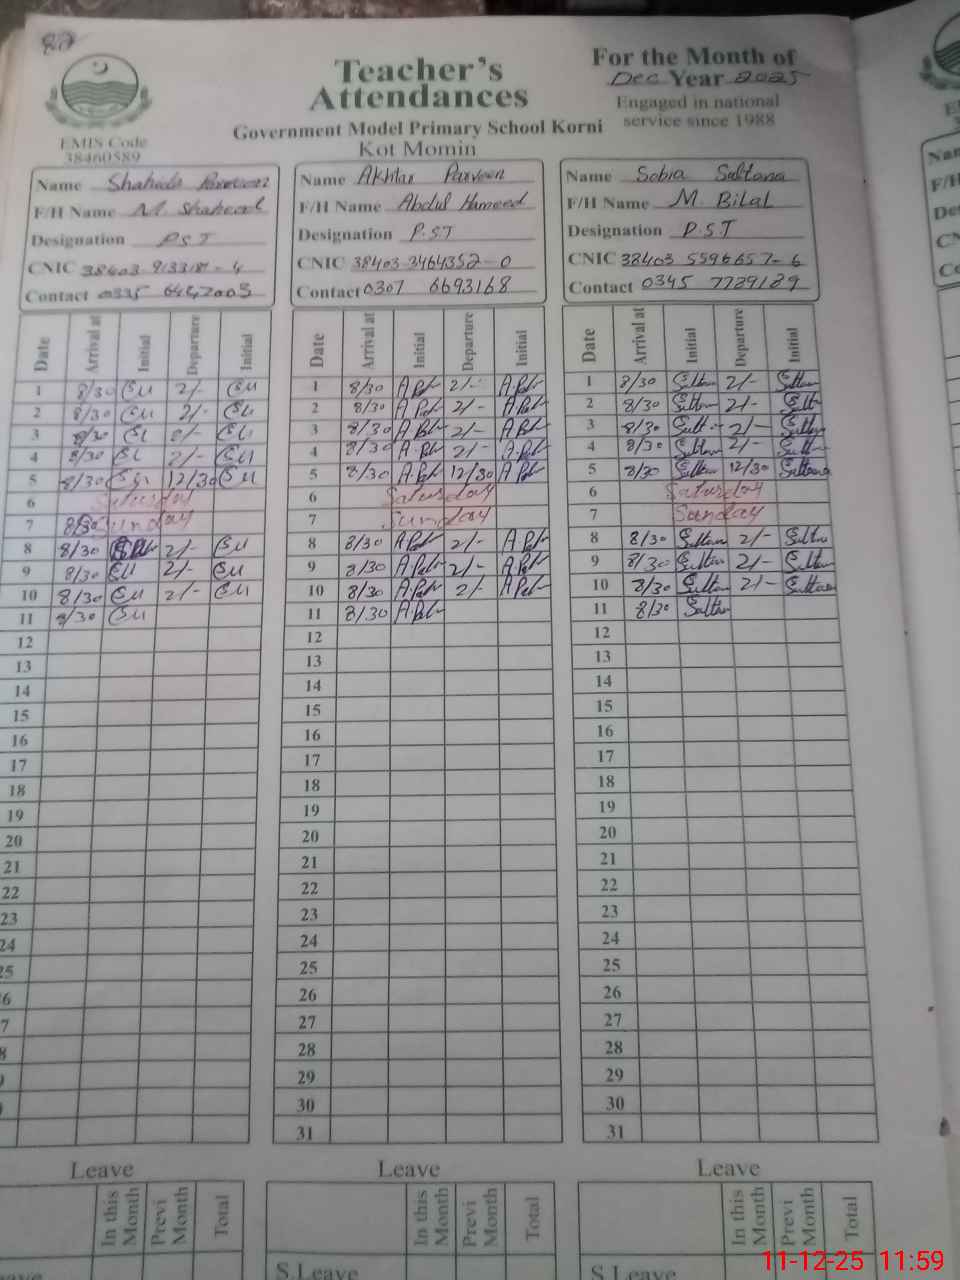 82
Teacher's
Attendances
For the Month of
Dec Year 2025
Engaged in national
service since 1988
EMIS Code
38460589
Government Model Primary School Korni
Kot Momin
Name Shahida Parveen
F/H Name M. Shaheed
Designation P.S.T
CNIC 38403
Contact 0335
Name Akhtar Parveen
F/H Name Abdul Hameed
Designation P.S.T
CNIC 38403-3464352-0
Contact 0307 6693168
Name Sobia Sultana
F/H Name M. Bilal
Designation P.S.T
CNIC 38403 5596657-6
Contact 0345 7789189
Date Arrival at Initial Departure Initial
1 8/30 2/-
2 8/30 2/-
3 8/30 2/-
4 8/30 2/-
5 8/30 12/30
6 Saturday
7 Sunday
8 8/30 2/-
9 8/30 2/-
10 8/30 2/-
11 8/30
12
13
14
15
16
17
18
19
20
21
22
23
24
25
Date Arrival at Initial Departure Initial
1 8/30 2/-
2 8/30 2/-
3 8/30 2/-
4 8/30 2/-
5 8/30 12/30
6 Saturday
7 Sunday
8 8/30 2/-
9 8/30 2/-
10 8/30 2/-
11 8/30
12
13
14
15
16
17
18
19
20
21
22
23
24
25
26
27
28
29
30
31
Date Arrival at Initial Departure Initial
1 8/30 Sultan 2/- Sultan
2 8/30 Sultan 2/-
3 8/30 2/- Sultan
4 8/30 Sultan 2/-
5 8/30 Sultan 12/30 Sultana
6 Saturday
7 Sunday
8 8/30 Sultan 2/-
9 8/30 Sultan 2/- Sultan
10 8/30 Sultan 2/- Sultan
11 8/30 Sultan
12
13
14
15
16
17
18
19
20
21
22
23
24
25
26
27
28
29
30
31
Leave
In this Month Previ Month Total
Leave
In this Month Previ Month Total
S.Leave
Leave
In this Month Previ Month Total
S.Leave
11-12-25 11:59